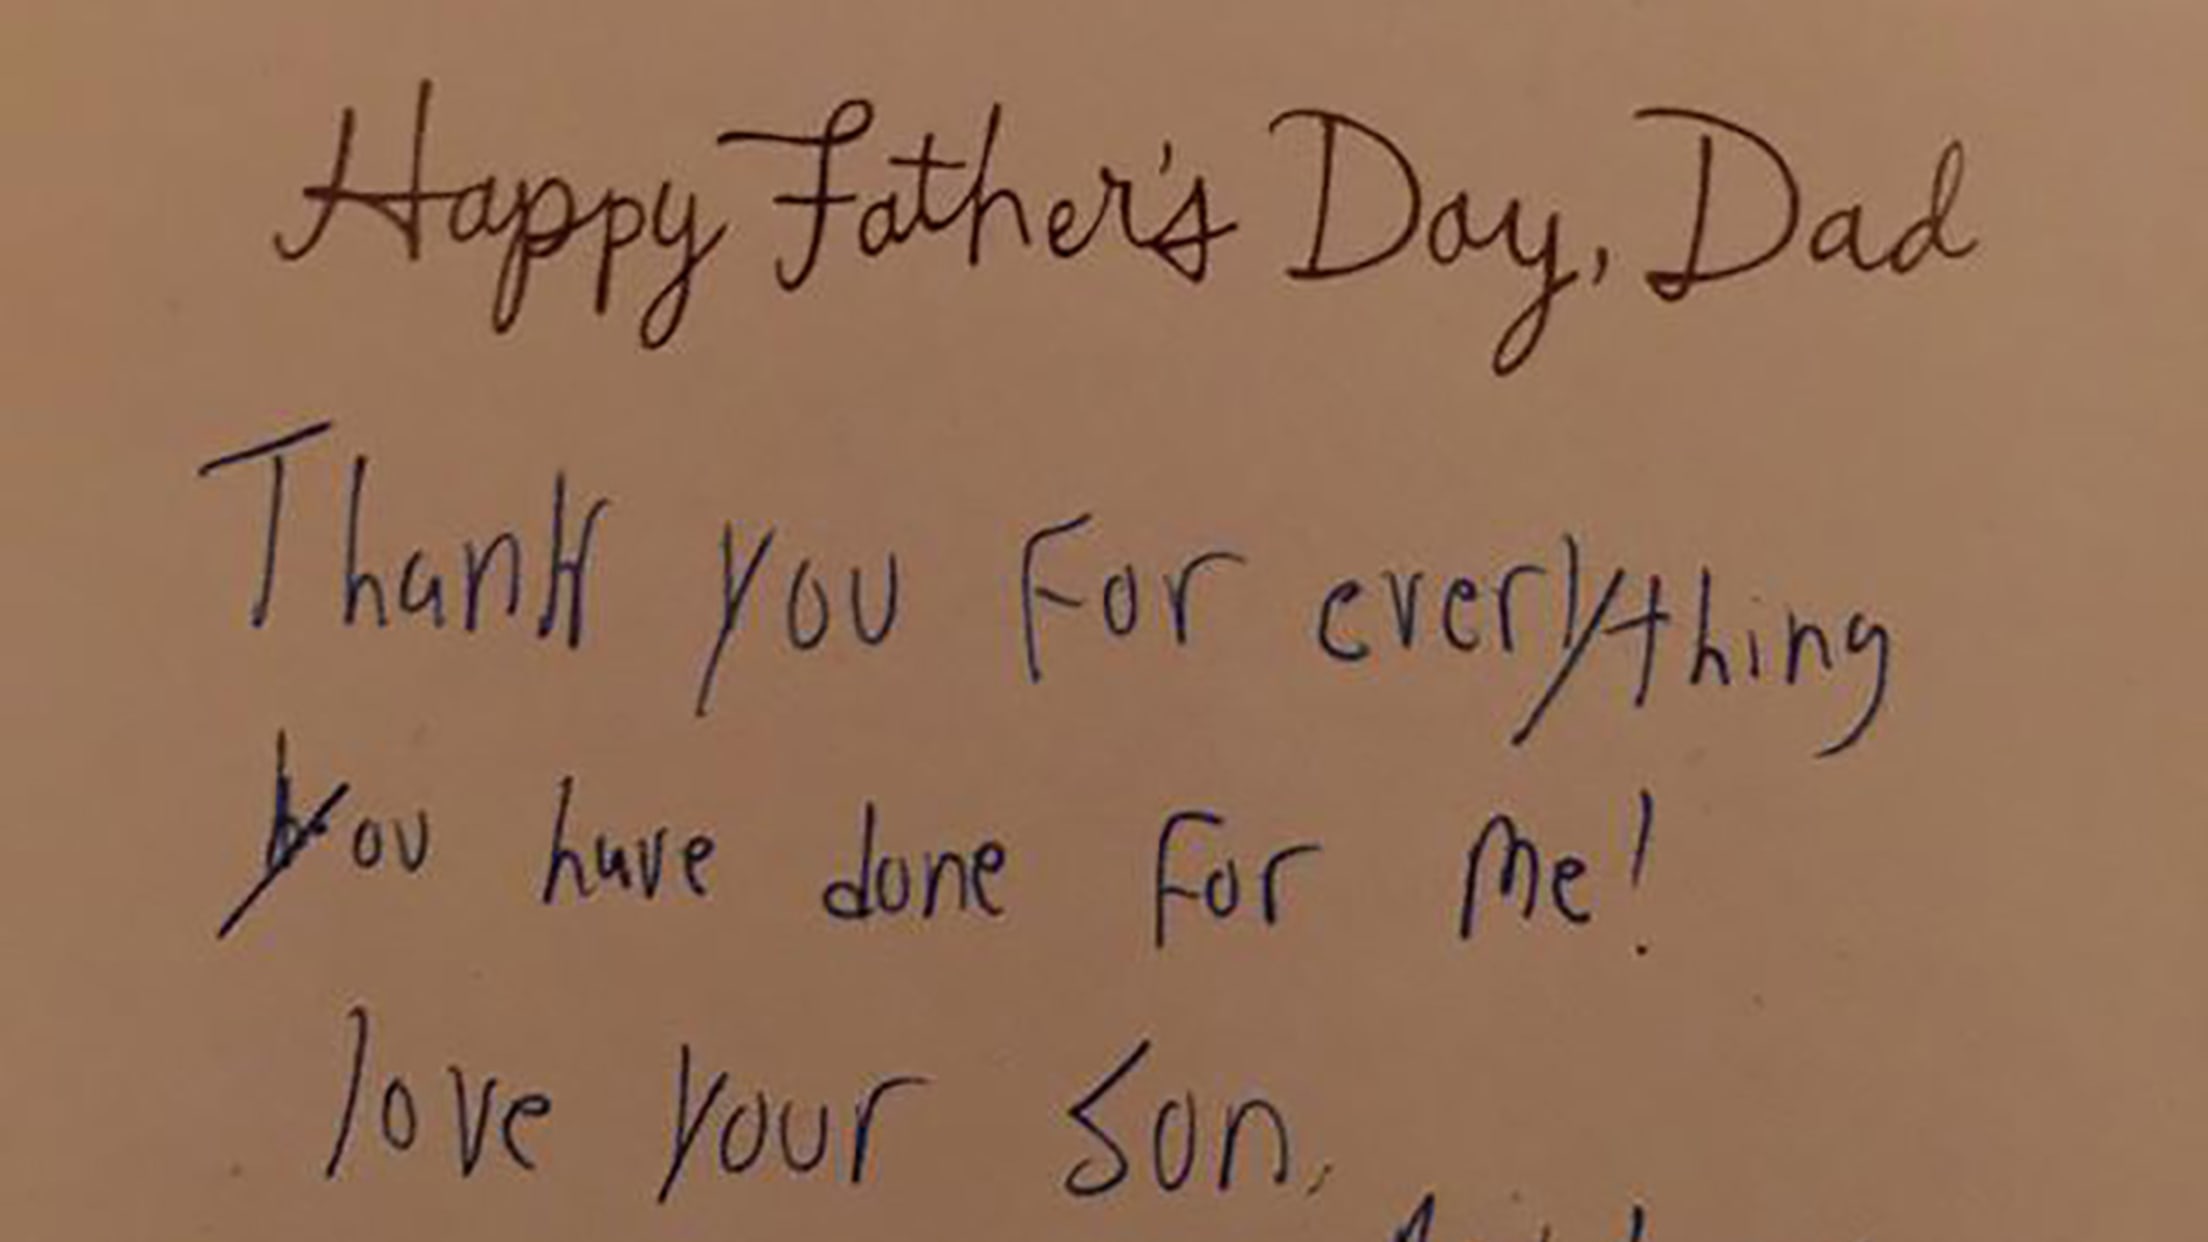 Happy Father's Day, Dad
Thank you For everything
you have done For me!
love your son,